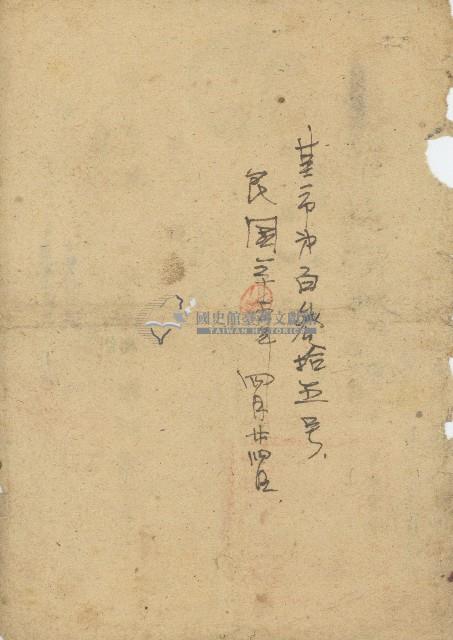 基市第百叁拾五号
民国三十五年四月廿四日
國史館臺灣文獻館
TAIWAN HISTORICA